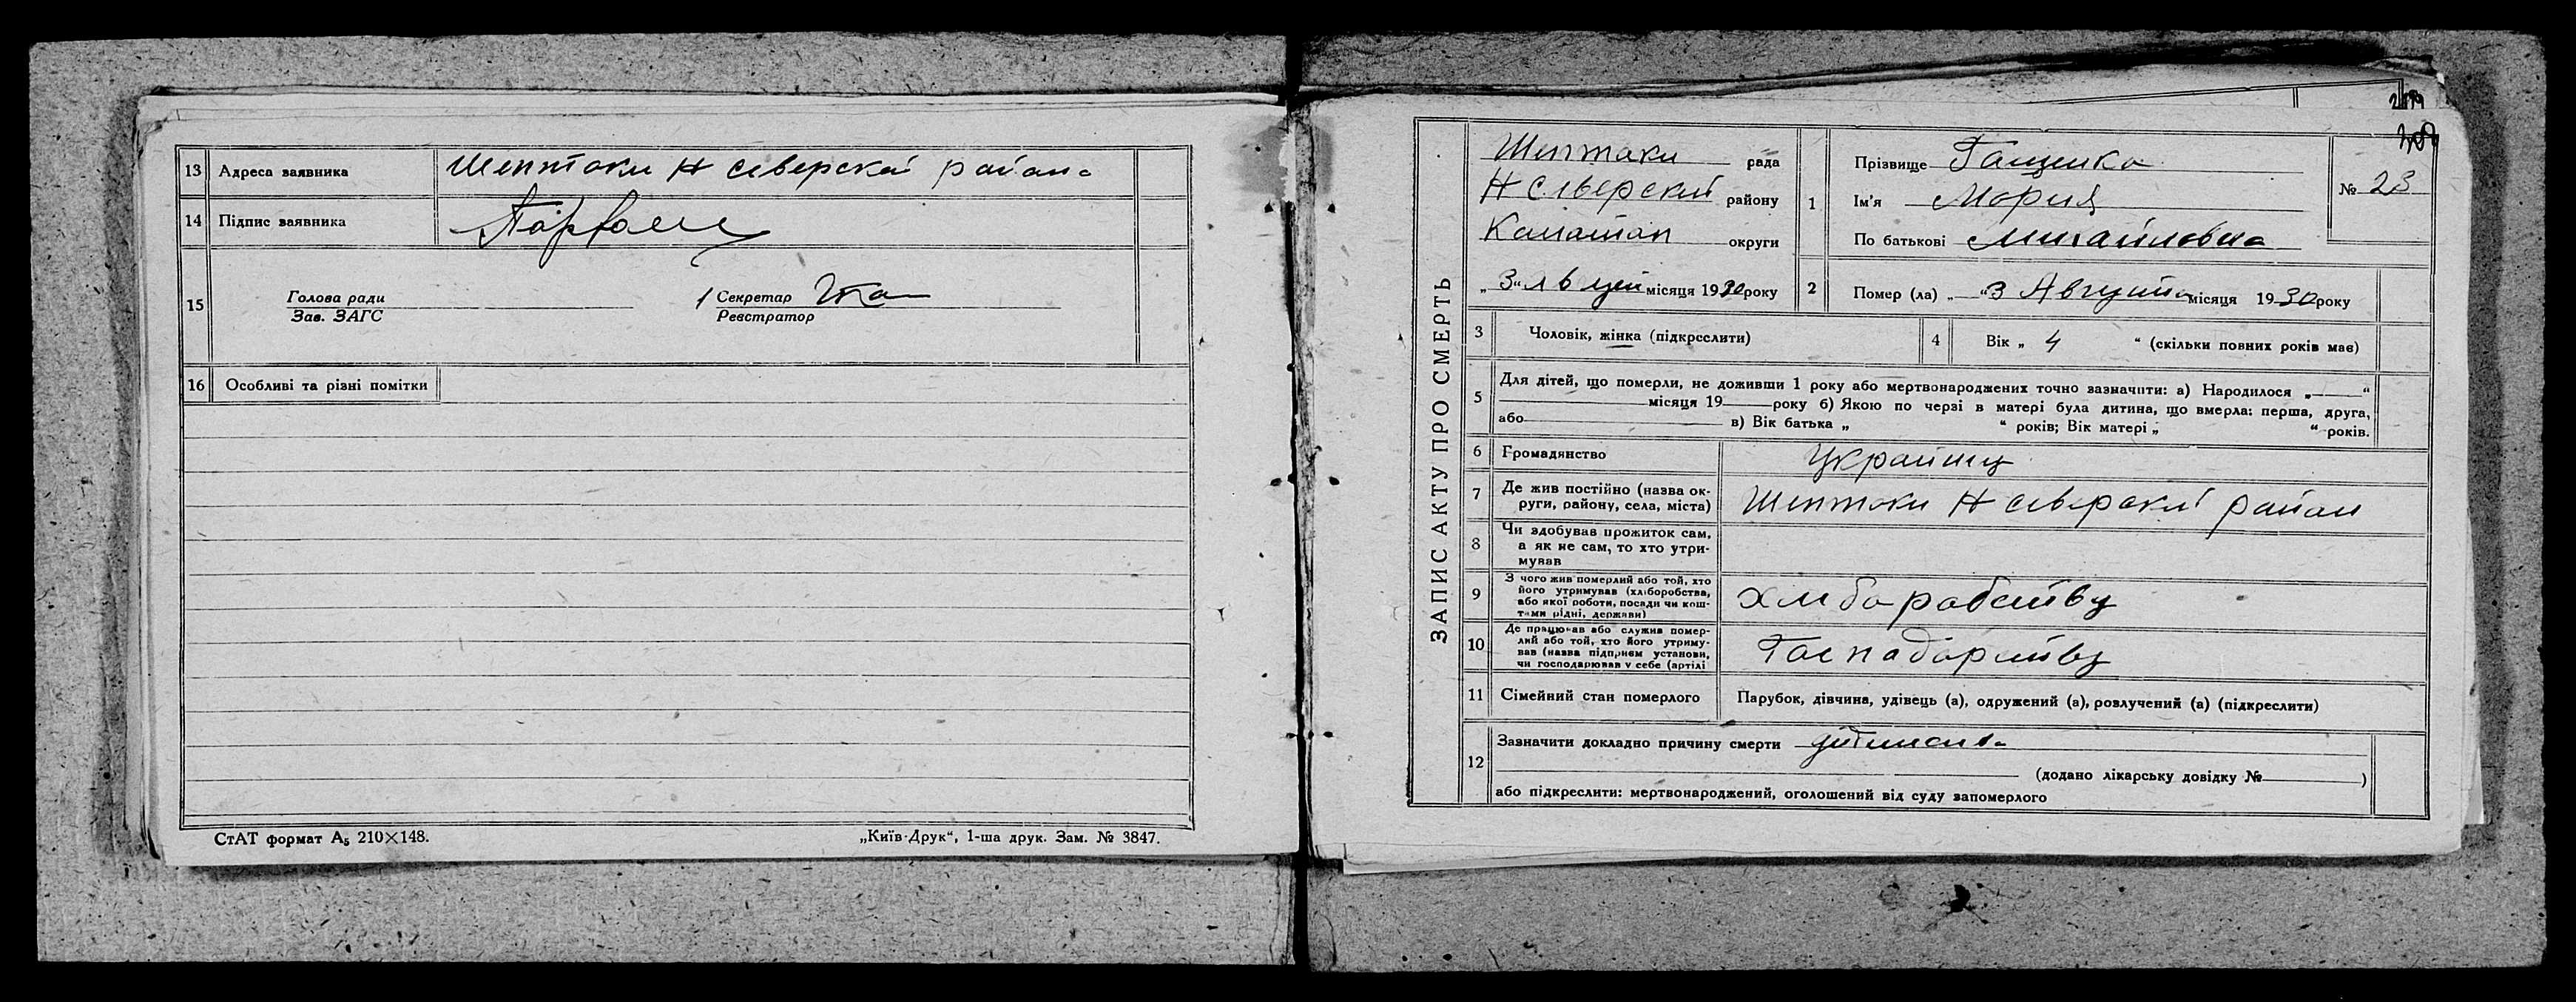 13 Адреса заявника Шептоки Н сіверской района
14 Підпис заявника
15 Голова ради Секретар
Зав. ЗАГС Реєстратор
16 Особливі та різні помітки
СтАТ формат А5 210×148. „Київ-Друк“, 1-ша друк. Зам. № 3847.
309
ЗАПИС АКТУ ПРО СМЕРТЬ
Шептаки рада
Н Сіверский району
округи
„3“ Август місяця 1930 року
1 Прізвище Гащенко
Ім'я Мория
По батькові Михайловна
№ 23
2 Помер (ла) „ “ 3 Августа місяця 1930 року
3 Чоловік, жінка (підкреслити)
4 Вік „ 4 “ (скільки повних років має)
5 Для дітей, що померли, не доживши 1 року або мертвонароджених точно зазначити: а) Народилося „ “
місяця 19 року б) Якою по черзі в матері була дитина, що вмерла: перша, друга,
або в) Вік батька „ “ років; Вік матері „ “ років.
6 Громадянство Украини
7 Де жив постійно (назва ок-
руги, району, села, міста) Шептоки Н сіверский район
8 Чи здобував прожиток сам,
а як не сам, то хто утри-
мував
9 З чого жив померлий або той, хто
його утримував (хліборобства,
або якої роботи, посади чи кош-
тами рідні, держави) хліборобству
10 Де працював або служив помер-
лий або той, хто його утриму-
вав (назва підприєм установи,
чи господарював у себе (артілі Господарству
11 Сімейний стан померлого Парубок, дівчина, удівець (а), одружений (а), розлучений (а) (підкреслити)
12 Зазначити докладно причину смерти
(додано лікарську довідку № )
або підкреслити: мертвонароджений, оголошений від суду запомерлого